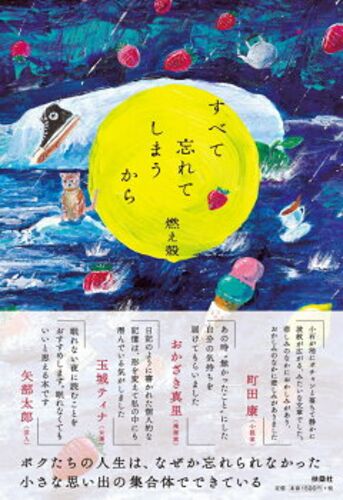 すべて
忘れて
しまう
から
燃え殻
小石が池にポチャンと落ちて静かに
波紋が広がる、みたいな文章でした。
悲しみのなかにおかしみがあり、
おかしみのなかに悲しみがありました
町田 康(小説家)
あの時“無かったこと”にした
自分の気持ちを
届けてもらいました
おかざき真里(漫画家)
日記のように書かれた個人的な
記憶は、形を変えて私の中にも
潜んでいる気がしました
玉城ティナ(女優)
眠れない夜に読むことを
おすすめします。眠れなくても
いいと思える本です
矢部太郎(芸人)
ボクたちの人生は、なぜか忘れられなかった
小さな思い出の集合体でできている
扶桑社
定価：本体1500円+税